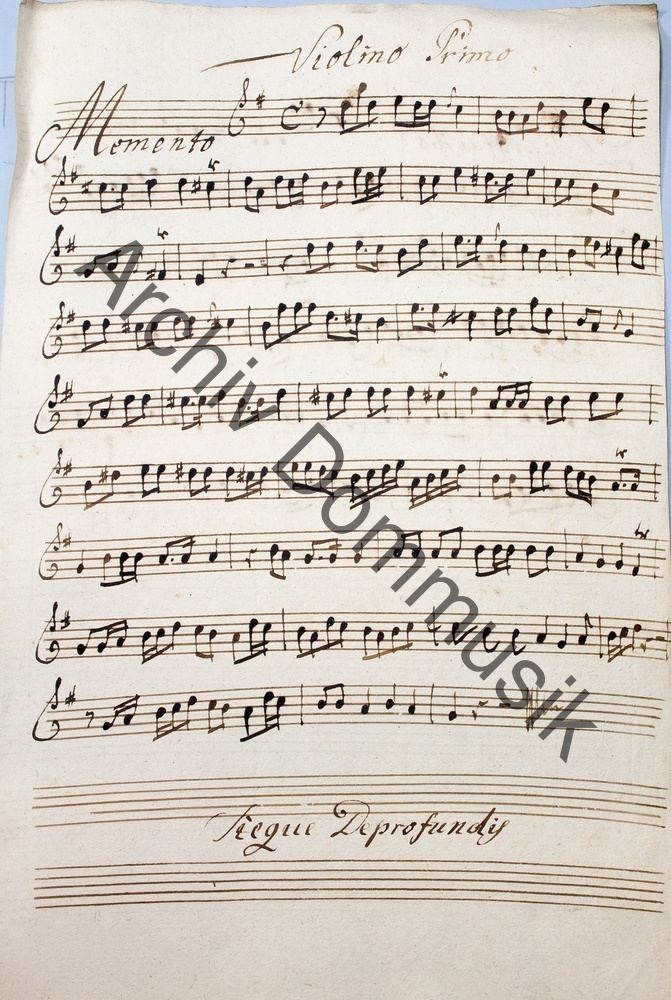 Violino Primo
Memento
Archiv Dommusik
Sieque Deprofundis